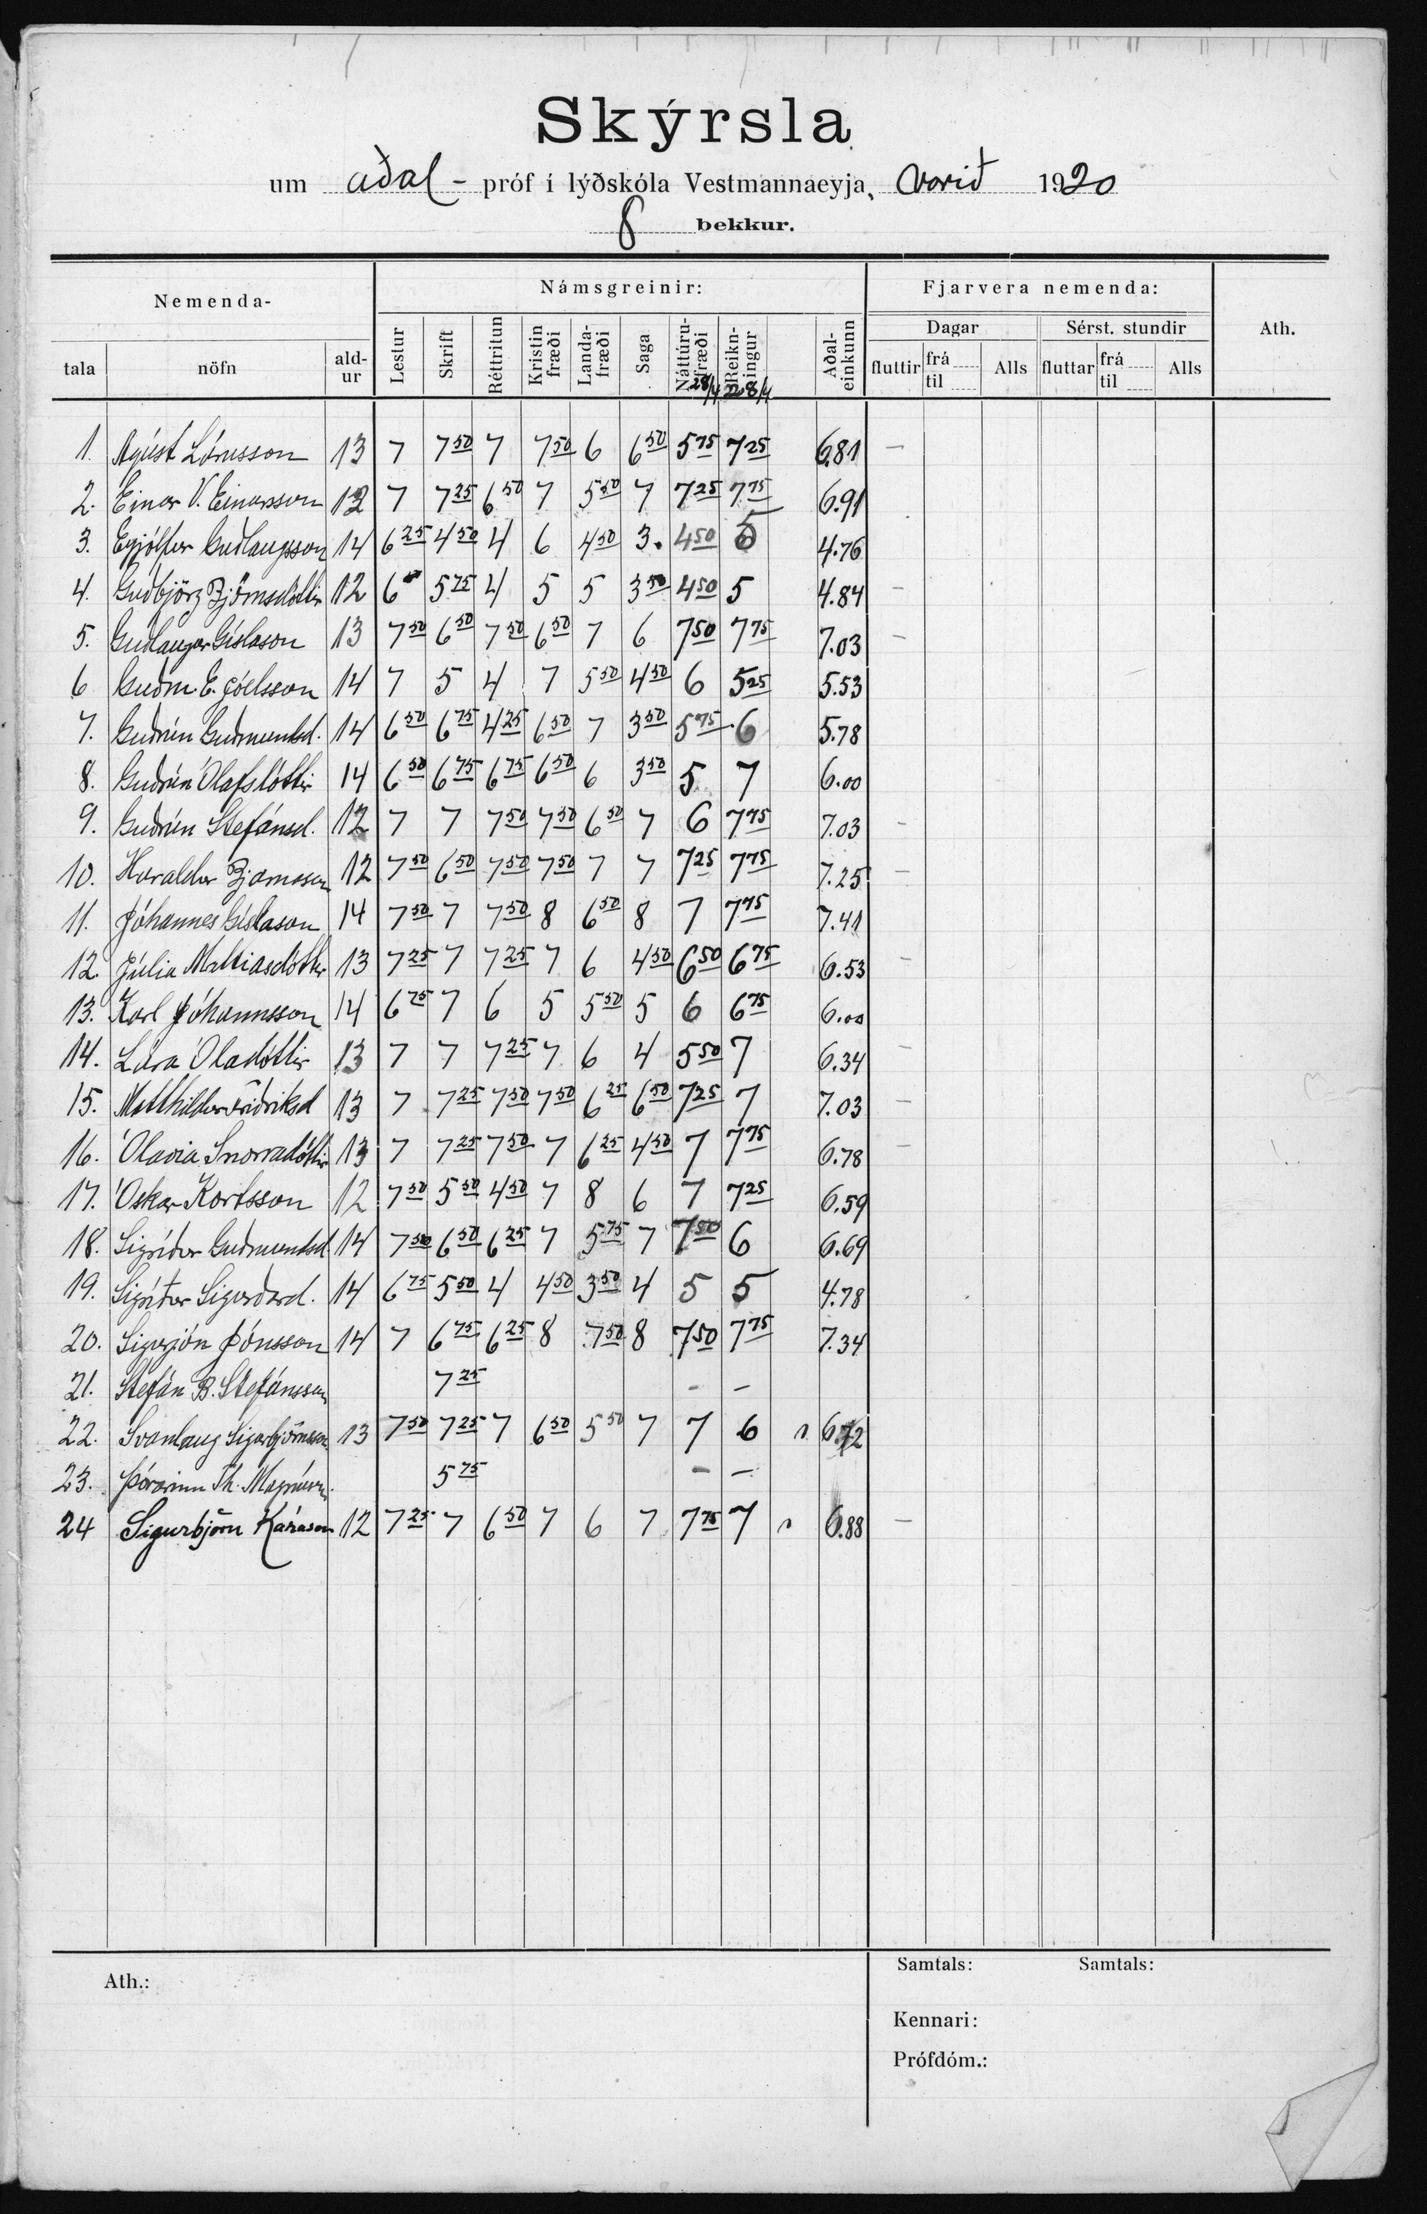 Skýrsla
um aðal- próf í lýðskóla Vestmannaeyja, vorið 1920
8 bekkur.
Nemenda- Námsgreinir: Fjarvera nemenda: Ath.
tala nöfn ald-ur Lestur Skrift Réttritun Kristinfræði Landafræði Saga Náttúru-fræði Reikn-ingur Aðal-einkunn Dagar Sérst. stundir
fluttir frá til Alls fluttar frá til Alls
28/4 28/4
1. Ágúst Lárusson 13 7 7 50 7 7 50 6 6 50 5 75 7 25 6.81 –
2. Einar V. Einarsson 12 7 7 25 6 50 7 5 50 7 7 25 7 75 6.91
3. Eyjólfur Guðlaugsson 14 6 25 4 50 4 6 4 50 3. 4 50 5 4.76
4. Guðbjörg Björnsdóttir 12 6 5 75 4 5 5 3 50 4 50 5 4.84 –
5. Guðlaugur Gíslason 13 7 50 6 50 7 50 6 50 7 6 7 50 7 75 7.03 –
6 Guðm. E. Jóelsson 14 7 5 4 7 5 50 4 50 6 5 25 5.53
7. Guðrún Guðmundsd. 14 6 50 6 75 4 25 6 50 7 3 50 5 75 6 5.78
8. Guðrún Ólafsdóttir 14 6 50 6 75 6 75 6 50 6 3 50 5 7 6.00
9. Guðrún Stefánsd. 12 7 7 7 50 7 50 6 50 7 6 7 75 7.03 –
10. Haraldur Bjarnason 12 7 50 6 50 7 50 7 50 7 7 7 25 7 75 7.25 –
11. Jóhannes Gíslason 14 7 50 7 7 50 8 6 50 8 7 7 75 7.41
12. Júlía Mattiasdóttir 13 7 25 7 7 25 7 6 4 50 6 50 6 75 6.53 –
13. Karl Jóhannsson 14 6 75 7 6 5 5 50 5 6 6 75 6.00
14. Lára Óladóttir 13 7 7 7 25 7 6 4 5 50 7 6.34 –
15. Matthildur Friðriksd 13 7 7 25 7 50 7 50 6 25 6 50 7 25 7 7.03 –
16. Ólavia Snorradóttir 13 7 7 25 7 50 7 6 25 4 50 7 7 75 6.78 –
17. Óskar Karlsson 12 7 50 5 50 4 50 7 8 6 7 7 25 6.59
18. Sigríður Guðmundsd. 14 7 50 6 50 6 25 7 5 75 7 7 50 6 6.69
19. Sigríður Sigurðard. 14 6 75 5 50 4 4 50 3 50 4 5 5 4.78
20. Sigurjón Jónsson 14 7 6 75 6 25 8 7 50 8 7 50 7 75 7.34
21. Stefán B. Stefánsson 7 25 – –
22. Svanlaug Sigurbjörnsd. 13 7 50 7 25 7 6 50 5 50 7 7 6 6.72
23. Þórarinn Th. Magnússon 5 75 – –
24 Sigurbjörn Kárason 12 7 25 7 6 50 7 6 7 7 75 7 6.88 –
Ath.: Samtals: Samtals:
Kennari:
Prófdóm.: